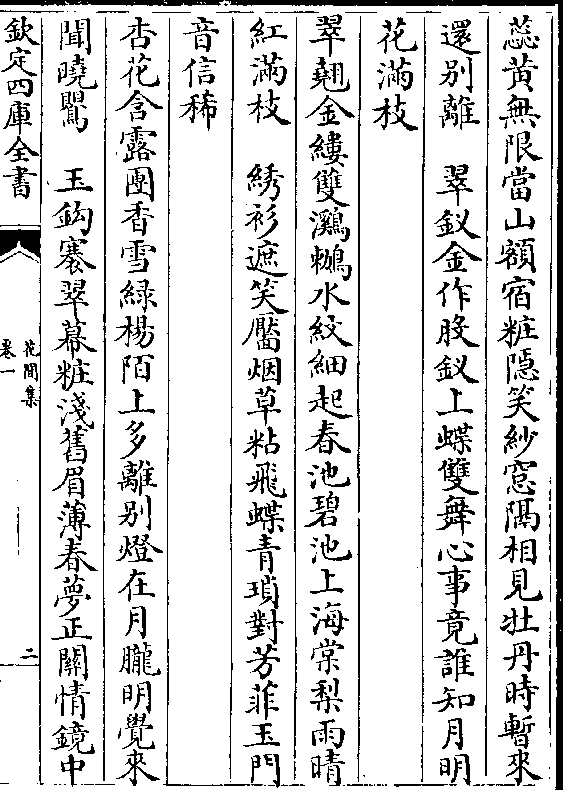 蕊黄無限當山額宿粧隱笑紗窓隅相見牡丹時暫來
還别離　翠釵金作股釵上蝶雙舞心事竟誰知月明
花滿枝
翠翹金縷雙鸂鶒水紋細起春池碧池上海棠梨雨晴
紅滿枝　綉衫遮笑靨烟草粘飛蝶青瑣對芳菲玉門
音信稀
杏花含露團香雪綠楊陌上多離别燈在月朧明覺來
聞曉鸎　玉鈎褰翠幕粧淺舊眉薄春夢正關情鏡中
欽定四庫全書
花間集
卷一
二